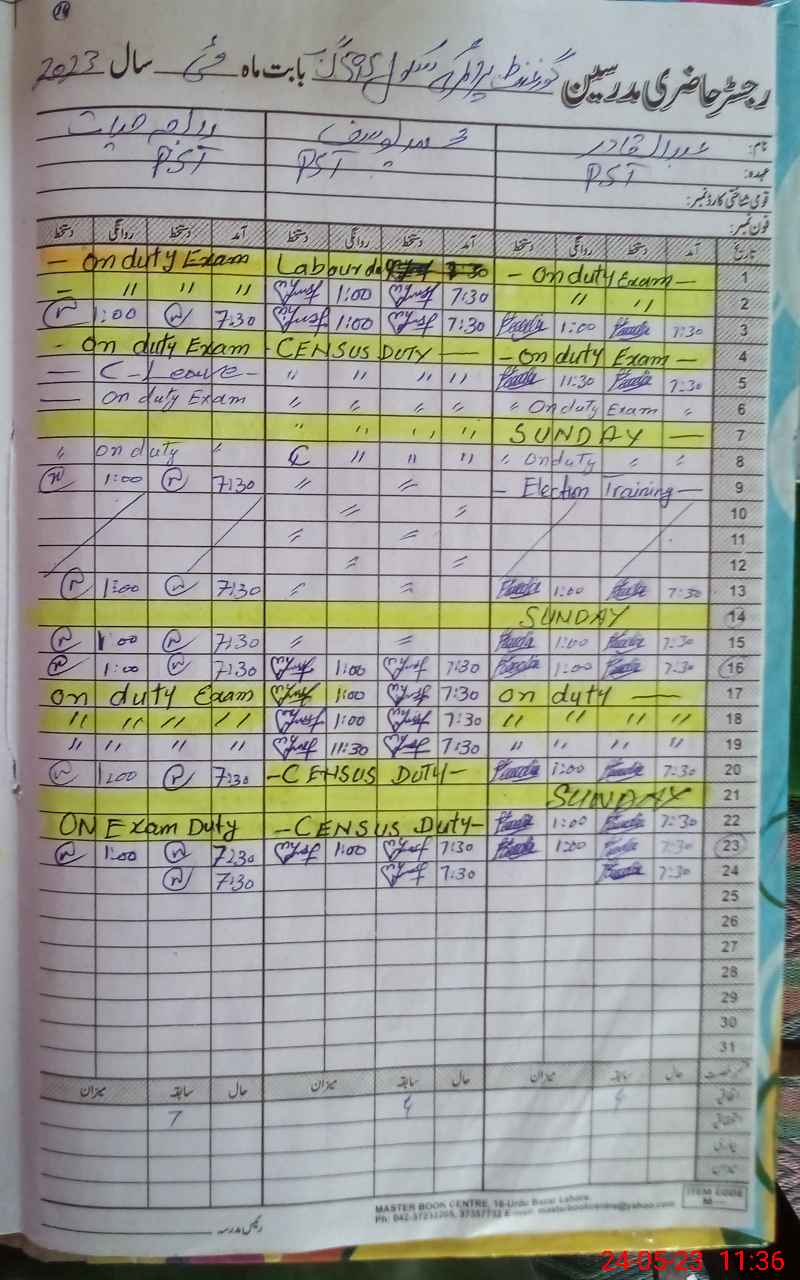 رجسٹر حاضری مدرسین گورنمنٹ پرائمری سکول بابت ماہ مئی سال 2023
نام: عبدالقادر محمد یوسف
عہدہ: PST PST PST
قومی شناختی کارڈ نمبر:
فون نمبر:
تاریخ آمد دستخط روانگی دستخط آمد دستخط روانگی دستخط آمد دستخط روانگی دستخط
— On duty Exam Labour day 7:30 — On duty Exam — 1
— " " " Yusf 1:00 Yusf 7:30 " " 2
1:00 7:30 Yusf 1:00 Yusf 7:30 1:00 7:30 3
- On duty Exam - CENSUS DUTY — - On duty Exam — 4
— C-Leave - " " " " 11:30 7:30 5
— On duty Exam " " " " " On duty Exam " 6
" " " " SUNDAY — 7
" On duty " C " " " " On duty " " 8
1:00 7:30 " " - Election Training — 9
" " 10
" " 11
" " 12
1:00 7:30 " " 1:00 7:30 13
SUNDAY 14
1:00 7:30 " " 1:00 7:30 15
1:00 7:30 Yusf 1:00 Yusf 7:30 1:00 7:30 16
On duty Exam Yusf 1:00 Yusf 7:30 On duty — 17
" " " " Yusf 1:00 Yusf 7:30 " " " " 18
" " " " Yusf 11:30 Yusf 7:30 " " " " 19
1:00 7:30 - CENSUS DUTY - 1:00 7:30 20
SUNDAY 21
ON Exam Duty - CENSUS Duty - 1:00 7:30 22
1:00 7:30 Yusf 1:00 Yusf 7:30 1:00 7:30 23
7:30 Yusf 7:30 7:30 24
25
26
27
28
29
30
31
حال سابقہ میزان حال سابقہ میزان حال سابقہ میزان
اتفاقی
7
MASTER BOOK CENTRE, 16-Urdu Bazar Lahore.
ITEM CODE
رئیس مدرسہ
24-05-23 11:36